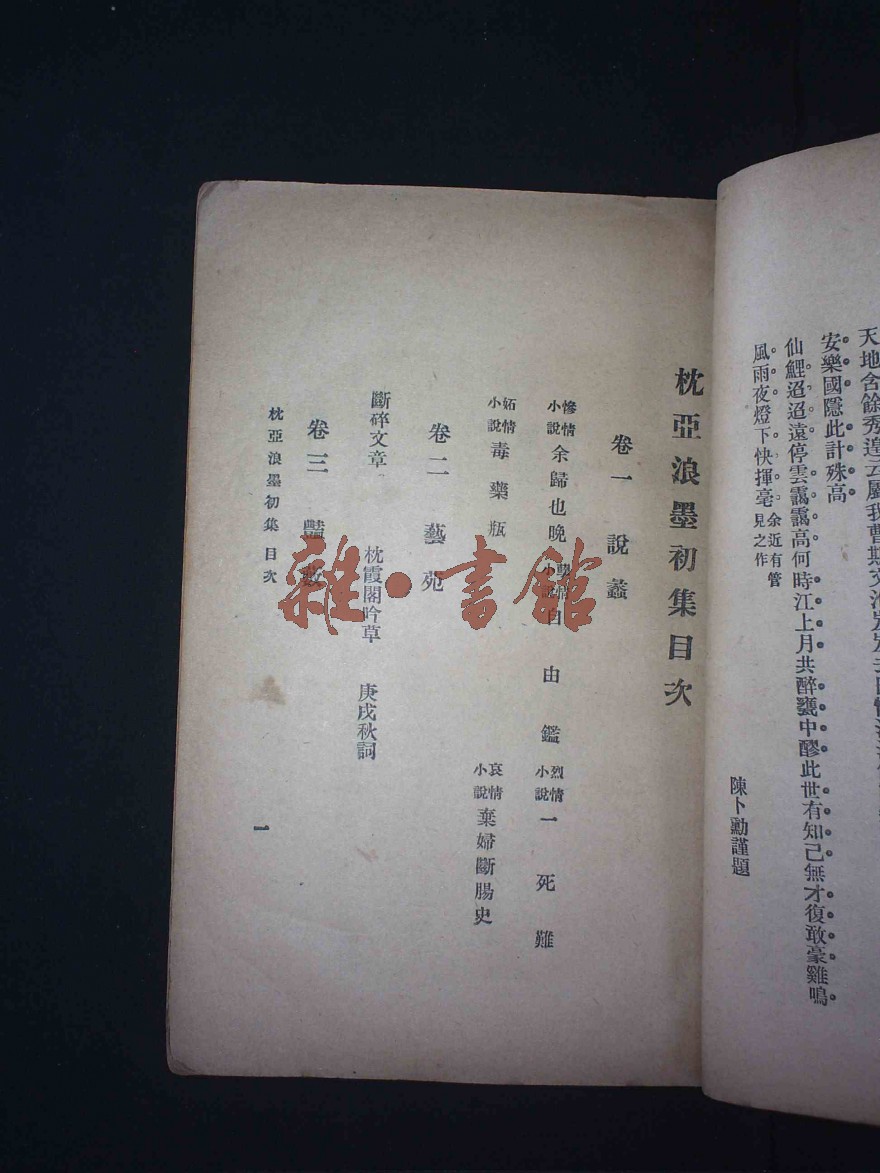 安樂國隱此計殊高
仙鯉迢迢遠停雲靄靄高何時江上月共醉甕中醪此世有知己無才復敢豪雞鳴
風雨夜燈下快揮毫余近有管見之作
陳卜勳謹題
枕亞浪墨初集目次
卷一 說蠡
慘情小說 余歸也晚 小說 自由鑑 烈情小說 一死難
妬情小說 毒藥瓶 哀情小說 棄婦斷腸史
卷二 藝苑
斷碎文章 枕霞閣吟草 庚戌秋詞
卷三 豔藪
枕亞浪墨初集 目次
一
雜·書館